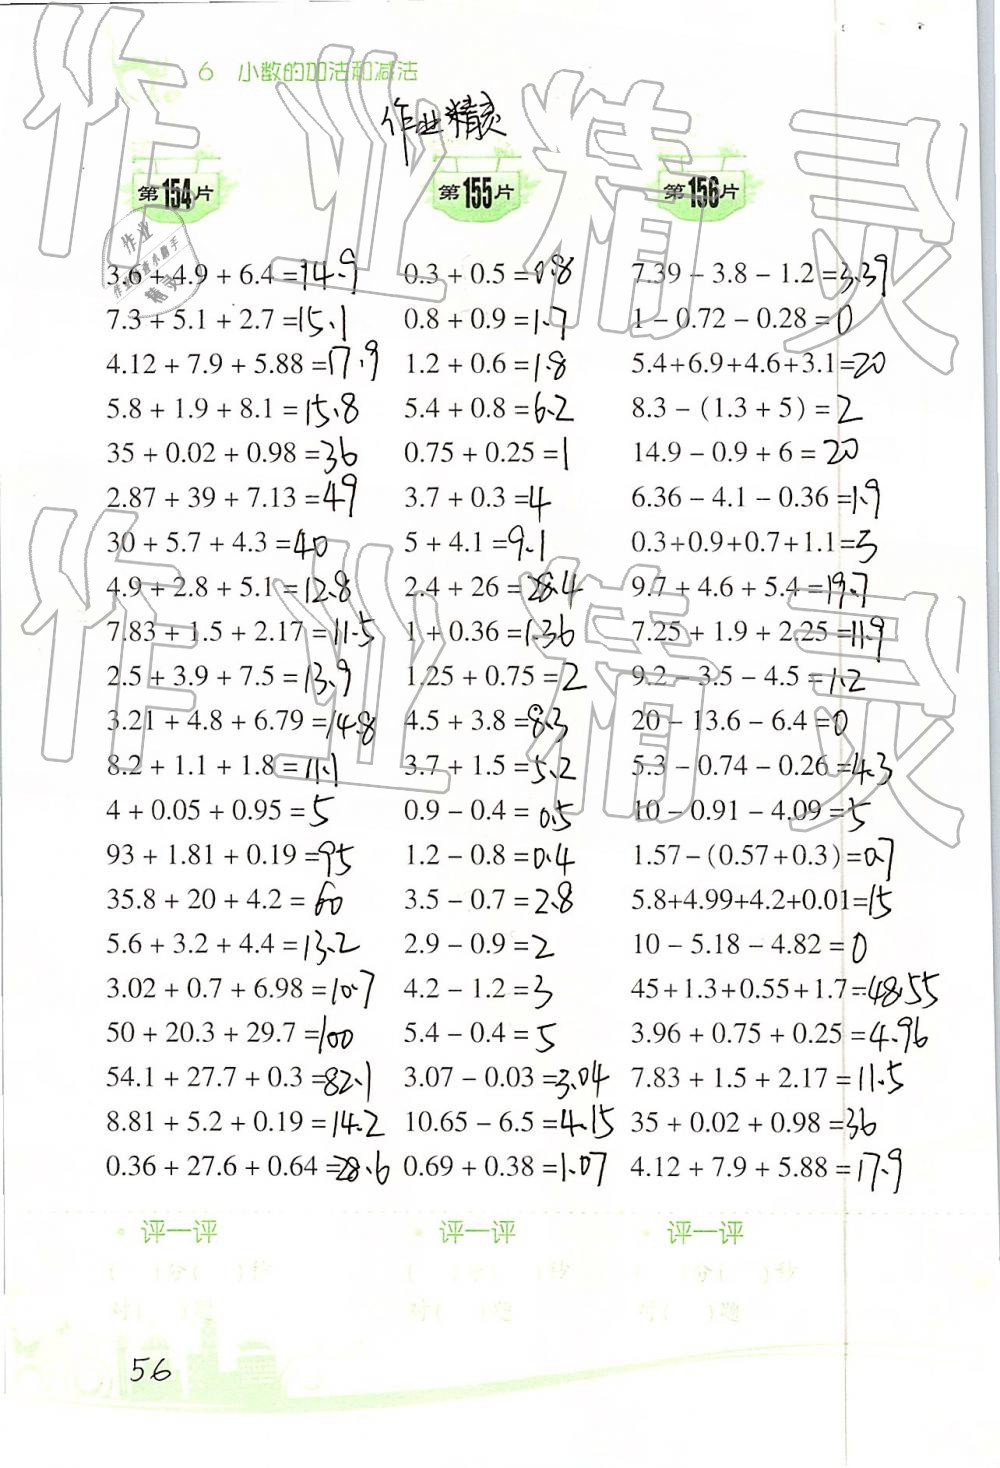 6 小数的加法和减法
作业精灵
第154片 第155片 第156片
3.6 + 4.9 + 6.4 = 14.9 0.3 + 0.5 = 0.8 7.39 - 3.8 - 1.2 = 3.39
7.3 + 5.1 + 2.7 = 15.1 0.8 + 0.9 = 1.7 1 - 0.72 - 0.28 = 0
4.12 + 7.9 + 5.88 = 17.9 1.2 + 0.6 = 1.8 5.4+6.9+4.6+3.1=20
5.8 + 1.9 + 8.1 = 15.8 5.4 + 0.8 = 6.2 8.3 - (1.3 + 5) = 2
35 + 0.02 + 0.98 = 36 0.75 + 0.25 = 1 14.9 - 0.9 + 6 = 20
2.87 + 39 + 7.13 = 49 3.7 + 0.3 = 4 6.36 - 4.1 - 0.36 = 1.9
30 + 5.7 + 4.3 = 40 5 + 4.1 = 9.1 0.3+0.9+0.7+1.1=3
4.9 + 2.8 + 5.1 = 12.8 2.4 + 26 = 28.4 9.7 + 4.6 + 5.4 = 19.7
7.83 + 1.5 + 2.17 = 11.5 1 + 0.36 = 1.36 7.25 + 1.9 + 2.25 = 11.9
2.5 + 3.9 + 7.5 = 13.9 1.25 + 0.75 = 2 9.2 - 3.5 - 4.5 = 1.2
3.21 + 4.8 + 6.79 = 14.8 4.5 + 3.8 = 8.3 20 - 13.6 - 6.4 = 0
8.2 + 1.1 + 1.8 = 11.1 3.7 + 1.5 = 5.2 5.3 - 0.74 - 0.26 = 4.3
4 + 0.05 + 0.95 = 5 0.9 - 0.4 = 0.5 10 - 0.91 - 4.09 = 5
93 + 1.81 + 0.19 = 95 1.2 - 0.8 = 0.4 1.57-(0.57+0.3)=0.7
35.8 + 20 + 4.2 = 60 3.5 - 0.7 = 2.8 5.8+4.99+4.2+0.01=15
5.6 + 3.2 + 4.4 = 13.2 2.9 - 0.9 = 2 10 - 5.18 - 4.82 = 0
3.02 + 0.7 + 6.98 = 10.7 4.2 - 1.2 = 3 45+1.3+0.55+1.7=48.55
50 + 20.3 + 29.7 = 100 5.4 - 0.4 = 5 3.96 + 0.75 + 0.25 = 4.96
54.1 + 27.7 + 0.3 = 82.1 3.07 - 0.03 = 3.04 7.83 + 1.5 + 2.17 = 11.5
8.81 + 5.2 + 0.19 = 14.2 10.65 - 6.5 = 4.15 35 + 0.02 + 0.98 = 36
0.36 + 27.6 + 0.64 = 28.6 0.69 + 0.38 = 1.07 4.12 + 7.9 + 5.88 = 17.9
评一评 评一评 评一评
( )分( )秒 ( )分( )秒 ( )分( )秒
对( )题 对( )题 对( )题
56
作业精灵
作业精灵